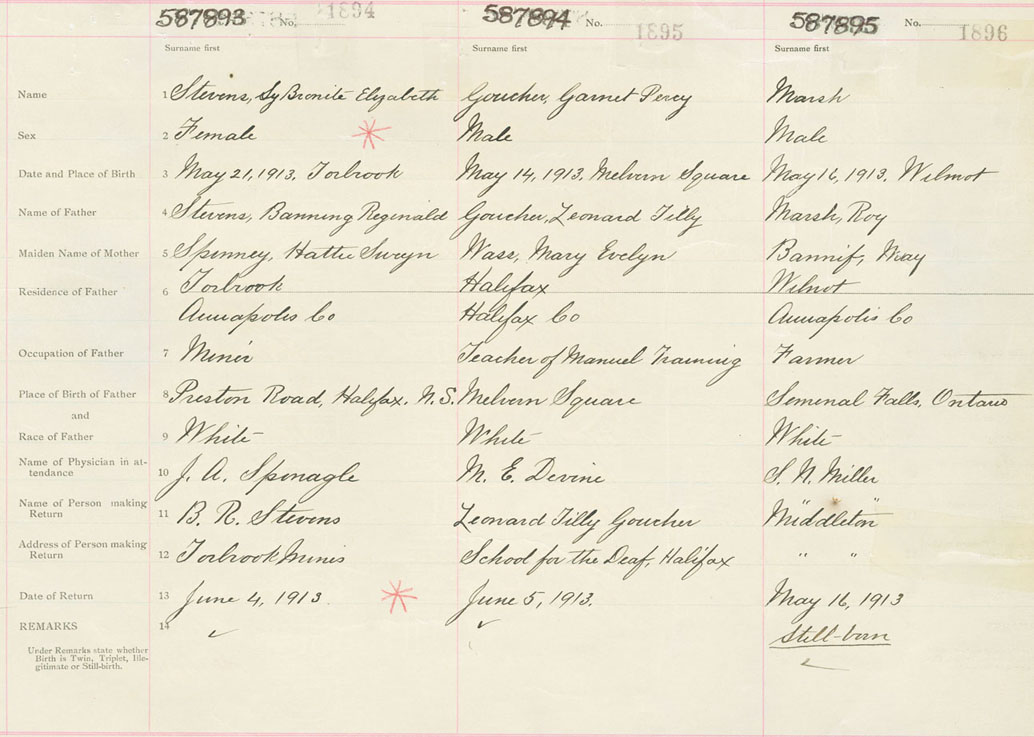 587893 No. 1894 587894 No. 1895 587895 No. 1896
Surname first Surname first Surname first
Name 1 Stevens, Sy Bronité Elyzabeth Goucher, Garnet Percy Marsh
Sex 2 Female Male Male
Date and Place of Birth 3 May 21, 1913. Torbrook May 14, 1913. Melvern Square May 16, 1913. Wilmot
Name of Father 4 Stevens, Banning Reginald Goucher, Leonard Tilly Marsh, Roy
Maiden Name of Mother 5 Spinney, Hattie Wass, Mary Evelyn May
Residence of Father 6 Torbrook Halifax Wilmot
Annapolis Co Halifax Co Annapolis Co
Occupation of Father 7 Miner Teacher of Manuel Training Farmer
Place of Birth of Father 8 Preston Road, Halifax. N.S. Melvern Square Falls, Ontario
and
Race of Father 9 White White White
Name of Physician in at-
tendance 10 J. A. Sponagle M. E. Devine S. N. Miller
Name of Person making
Return 11 B. R. Stevens Leonard Tilly Goucher " Middleton "
Address of Person making
Return 12 Torbrook Mines School for the Deaf, Halifax " "
Date of Return 13 June 4, 1913. June 5, 1913. May 16, 1913
REMARKS 14 Still-born
Under Remarks state whether
Birth is Twin, Triplet, Ille-
gitimate or Still-birth.